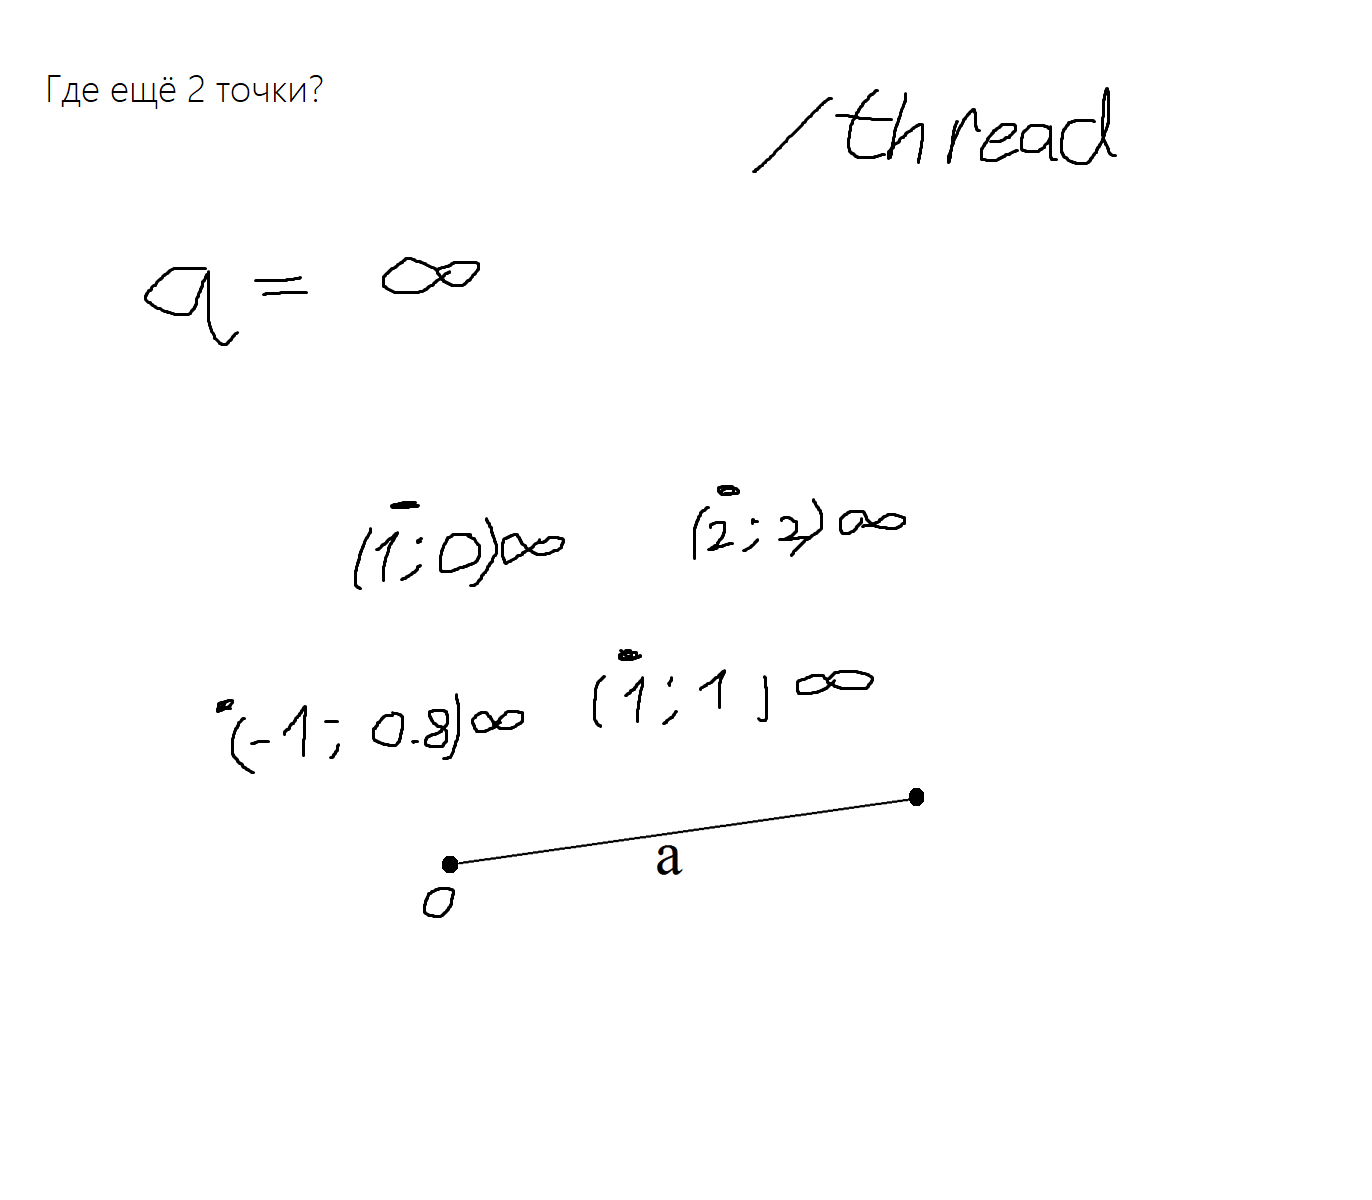 Где ещё 2 точки?
/thread
a = ∞
(1; 0)∞ (2; 2)∞
(-1; 0.8)∞ (1; 1)∞
a
0